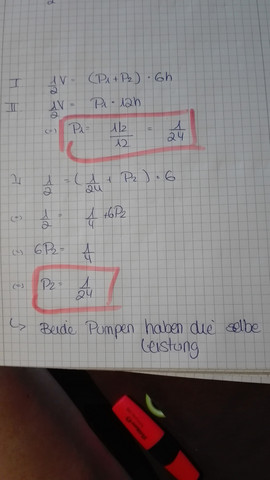 I ½V = (P1+P2) · 6h
II ½V = P1 · 12h
(=) P1 = 1/2 / 12 = 1/24
½ = (1/24 + P2) · 6
(=) ½ = ¼ + 6P2
(=) 6P2 = ¼
(=) P2 = 1/24
↳ Beide Pumpen haben die selbe
Leistung